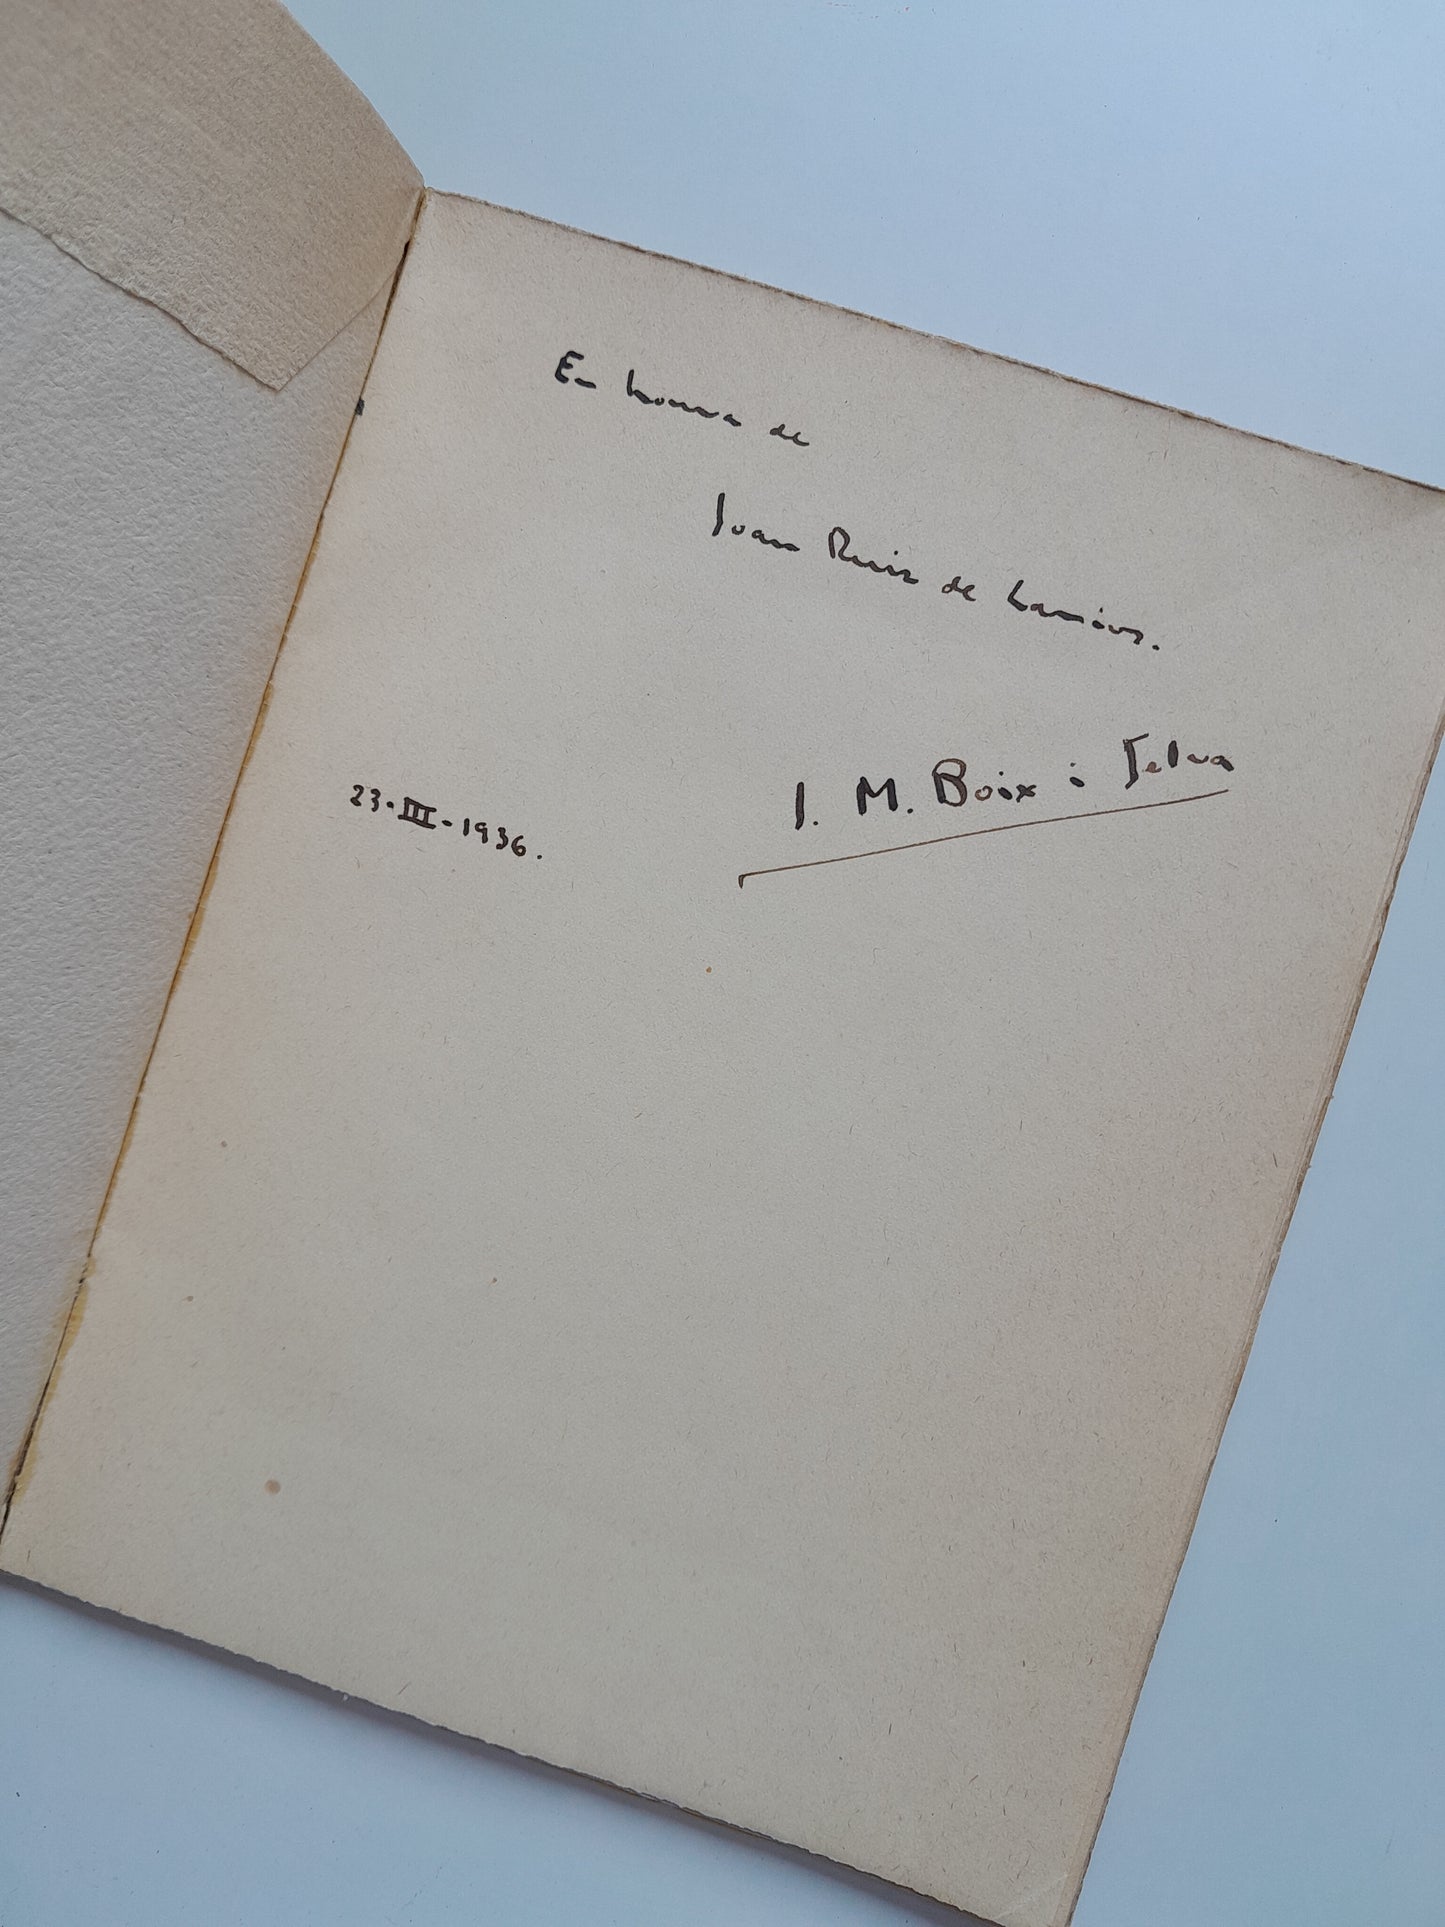 En honra de
Joan Ruiz de Larrios.
J. M. Boix i Selva
23-III-1936.